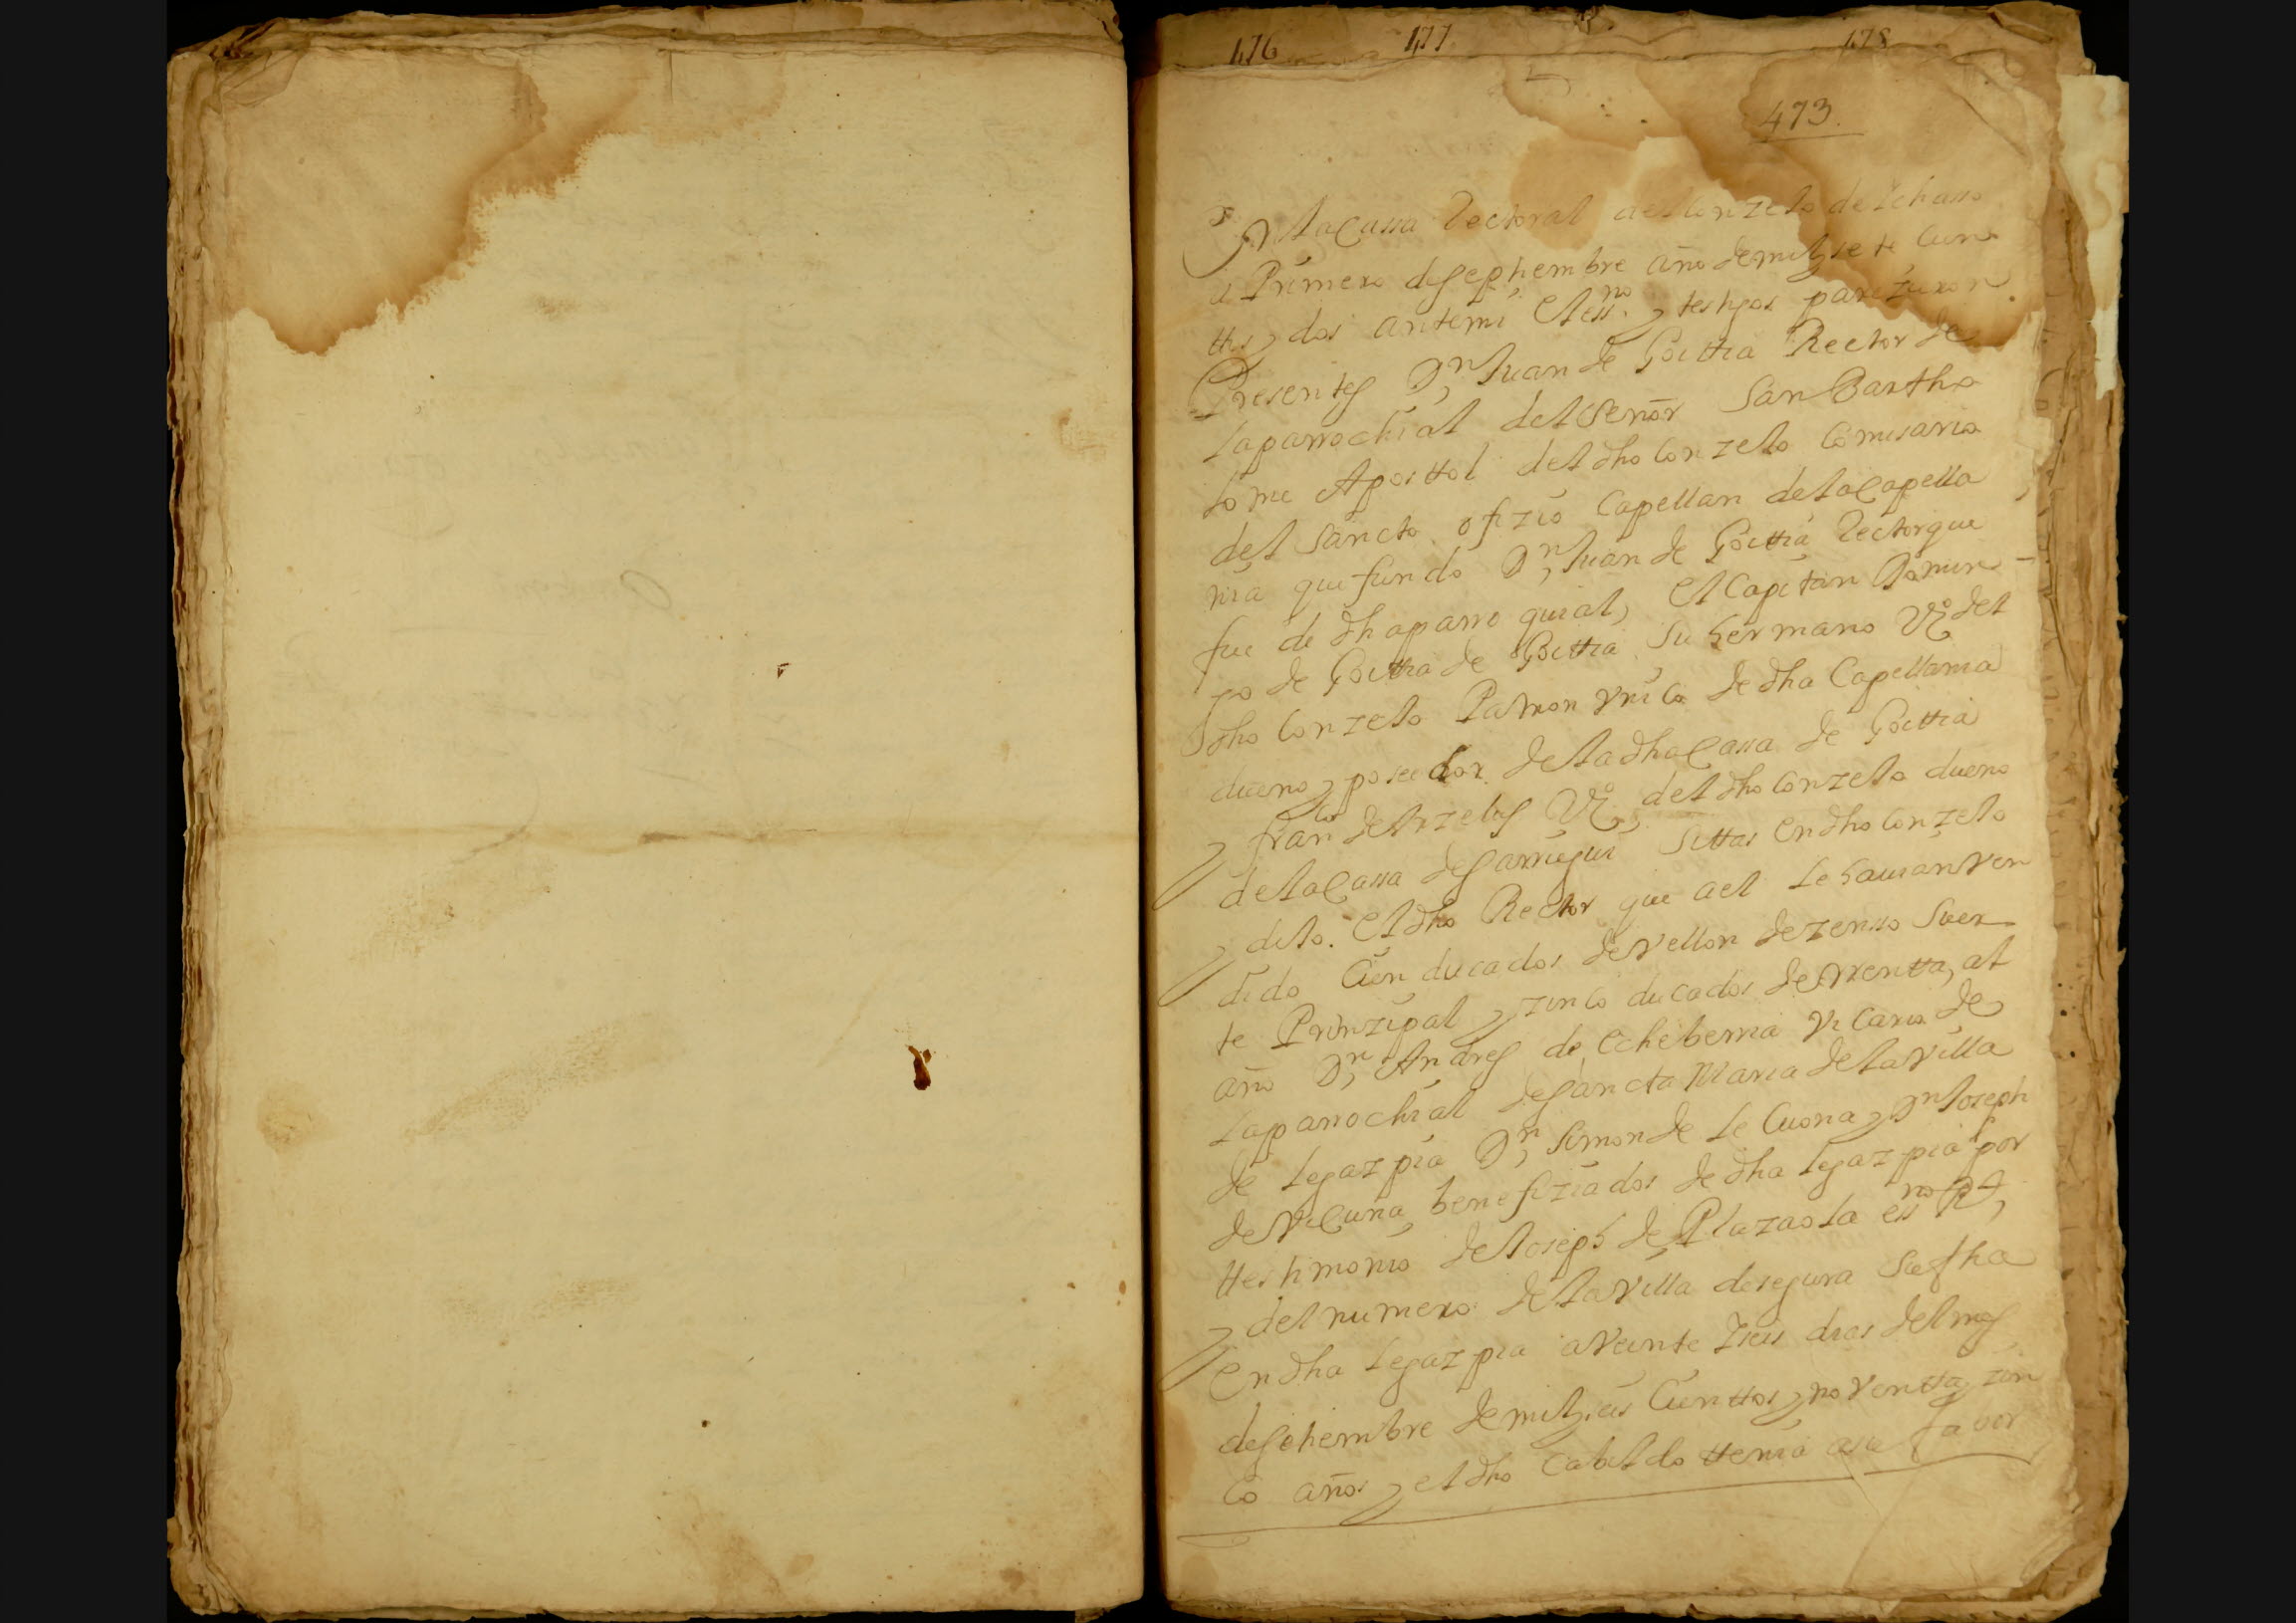 476 477 478
473.
En la Cassa Rectoral del Conzeto de Ichasso
a Primero de septiembre año de mil y sete cien
ttos y dos ante mi el essno. y testigos parezieron
Presentes Dn Juan de Goittia Rector de
la parrochial del señor San Bartho
lome Aposttol del dho Conzeto Comisario
del sancto ofizio Capellan de la Capella
nia que fundo Dn Juan de Goittia Rector que
fue de dha parroquial, el Capitan Domin
go de Goittia de Goittia su hermano Vo del
dho Conzeto Patron Vnico de dha Capellania
dueno y poseedor de la dha Cassa de Goittia
y franco de Arzelus Vo del dho Conzeto dueno
de la Cassa de Sarriegui sittas en dho Conzeto
y dito. el dho Rector que a el le hauian Ven
dido Cien ducados de Vellon de zensso Suer
te Prinzipal y zinco ducados de rrentta, al
año Dn Andres de Echeberria Vicario de
la parrochial de sancta Maria de la Villa
de legazpia Dn Simon de le Cuona y Dn Joseph
de ViCuna benefiziados de dha legazpia por
ttestimonio de Joseph de Plazaola essno Rl,
y del numero de la Villa de segura su fha
en dha legazpia a Veinte y seis dias del mes
de septiembre de mil y seis Cienttos y noVentta y zin
co años y el dho Cabildo ttenia a su fabor